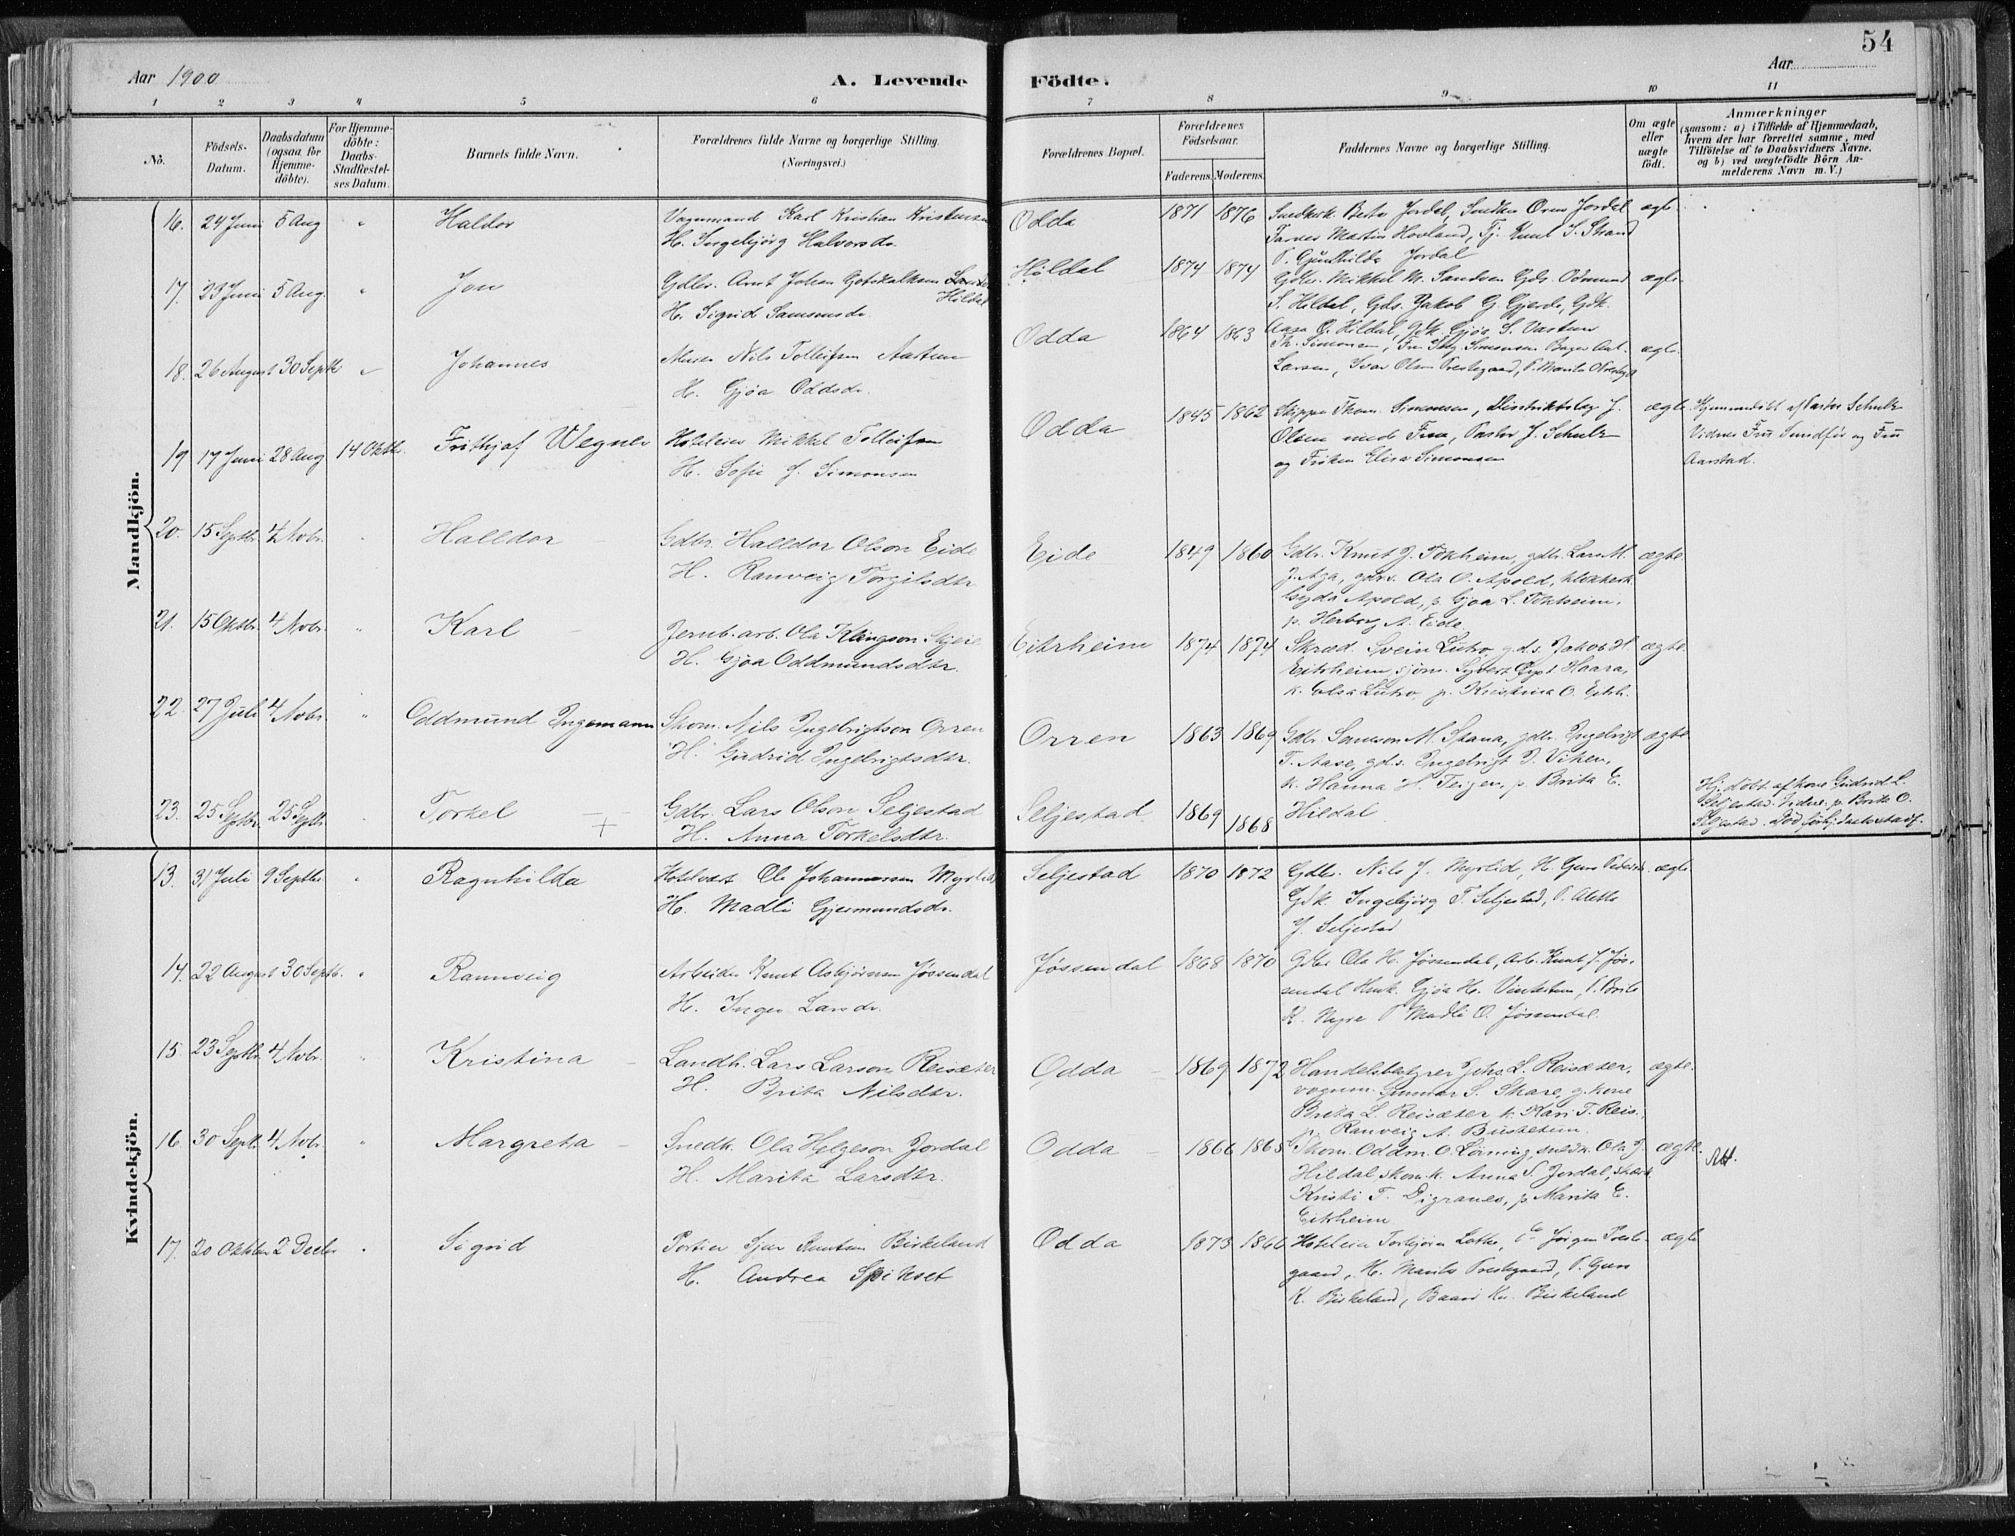 54
Aar 1900
A. Levende Födte.
Aar
1 2 3 4 5 6 7 8 9 10 11
No.
Födsels-Datum.
Daabsdatum (ogsaa for Hjemme-döbte).
For Hjemme-döbte: Daabs-Stadfæstel-ses Datum.
Barnets fulde Navn.
Forældrenes fulde Navne og borgerlige Stilling. (Næringsvei.)
Forældrenes Bopæl.
Forældrenes Födselsaar.
Faderens. Moderens.
Faddernes Navne og borgerlige Stilling.
Om ægte eller uægte födt.
Anmærkninger
(saasom: a) i Tilfælde af Hjemmedaab, hvem der har forrettet samme, med Tilföielse af to Daabsvidners Navne, og b) ved uægtefödte Börn An-melderens Navn m. V.)
Mandkjön.
16. 24 Juni 5 Aug " Haldor
Vognmand Karl Kristian Kristensen
H. Ingebjörg Halvorsdr.
Odda 1871 1876
Snedkerk. Berta Jordal, Snedker Orm Jordal
Farver Martin Hovland, Tj. Knut S. Strand
P. Gunhilda Jordal
ægte
17. 23 Juni 5 Aug. " Jon
Gdbr. Arnt Johan Gotskalksen
Hildal
H. Sigrid Samsonsdr.
Hildal 1874 1874
Gdbr. Mikkel M. Sandven Gds. Odmund
S. Hildal, Gds. Jakob G. Gjerde, Gdk.
Aasa O. Hildal, Gdk. Gjøa S.
ægte
18. 26 August 30 Septb " Johannes
Nils Tolleifsen Aastun
H. Gjøa Oddsdr.
Odda 1864 1863
Th. Simonsen, Fru Simonsen Bager
Larsen, Ivar Olsen Prestegaard, P. Marita
ægte.
19 17 Juni 28 Aug 14 Oktb. Frithjof Wegner
Hoteleier Mikkel Tolleifsen
H. Sofie J. Simonsen
Odda 1845 1862
Skipper Thom. Simonsen, Distriktslæg J.
Olsen med Frue, Pastor J. Schulz
og Frøken Elisa Simonsen
ægte
Hjemmedöbt af Pastor Schulz
Vidner Fru Sundfør og Fru
Aarstad.
20. 15 Septbr. 4 Nvbr. " Halldor
Gdbr. Halldor Olson Eide
H. Ranveig Torgilsdtr.
Eide 1849 1860
Gdbr. Knut J. Tokheim, gdbr. Lars M.
J. Aga, gdbr. Ola O. Apold, klokkerk
Gyda Apold, p. Gjøa L. Tokheim,
p. Herborg A. Eide
ægte
21. 15 Oktbr. 4 Nvbr. " Karl
Jernb. arb. Ola Klingson Skjeie
H. Gjøa Oddmundsdtr.
Eitrheim 1874 1874
Skræd. Svein Lutro, gds. Jakob H.
Eitrheim, sjöm. Syvert Haara,
k. Olsa Lutro, p. Kristina O. Eitrh.
ægte
22. 27 Juli 4 Nvbr. " Oddmund Ingemann
Skom. Nils Ingebrigtson Orren
H. Gudrid Ingebrigtsdtr.
Orren 1863 1869
Gdbr. Samson M. Spana, gdbr. Ingebrigt
T. Aase, gds. Ingebrigt I. Viken,
k. Hanna H. Teigen, p. Brita E.
Hildal
ægte
23. 25 Septbr. 25 Septbr. " Torkel +
Gdbr. Lars Olson Seljestad
H. Anna Torkelsdtr.
Seljestad 1869 1868
Hj. döbt af kone Gudrid L.
Seljestad. Vidne. p. Brita O.
Seljestad. Död
Kvindekjön.
13. 31 Juli 9 Septbr. " Ragnhilda
Ole Johannessen Myrlid
H. Madli Gjermundsdr.
Seljestad 1870 1872
Gdbr. Nils J. Myrlid, H. Guro
Gdk Ingebjörg T. Seljestad, P.
J. Seljestad
ægte
14. 22 August 30 Septb. " Rannveig
Arbeider Knut Asbjørnsen Jøssendal
H. Inger Larsdr.
Jøssendal 1868 1870
Gdbr Ola H. Jøssendal, Arb. Knut J. Jøs-
sendal Gjøa H. P. Brita
K. P Madli O. Jøssendal.
15. 23 Septbr. 4 Nvbr. " Kristina
Landh. Lars Larson Reisæter
H. Brita Nilsdtr.
Odda 1869 1872
Handelsbetyrer Johs. L. Reisæter,
vognm. Gunnar S. Skare, g. kone
Brita L. Reisæter k. Kari T. Reis.
p. Ranveig A. Busheim.
ægte.
16 30 Septb. 4 Nvbr. " Margreta
Snedk. Ola Helgeson Jordal
H. Marita Larsdtr.
Odda 1866 1868
Skom. Oddm. O. Lönning, snedk. Ola J.
Hildal, skom.k. Anna S. Jordal,
Kristi T. Digranes, p. Marita E.
Eitrheim
ægte.
17. 20 Oktber 2 Decbr " Sigrid
Portier Sjur Knutsen Birkeland
H. Andrea Spilset
Odda 1873 1866
Hoteleier Torbjørn Lothe, Jørgen Preste-
gaard, H. Marita Prestegaard, P. Guro
K. Birkeland, Baard Kn. Birkeland
ægte